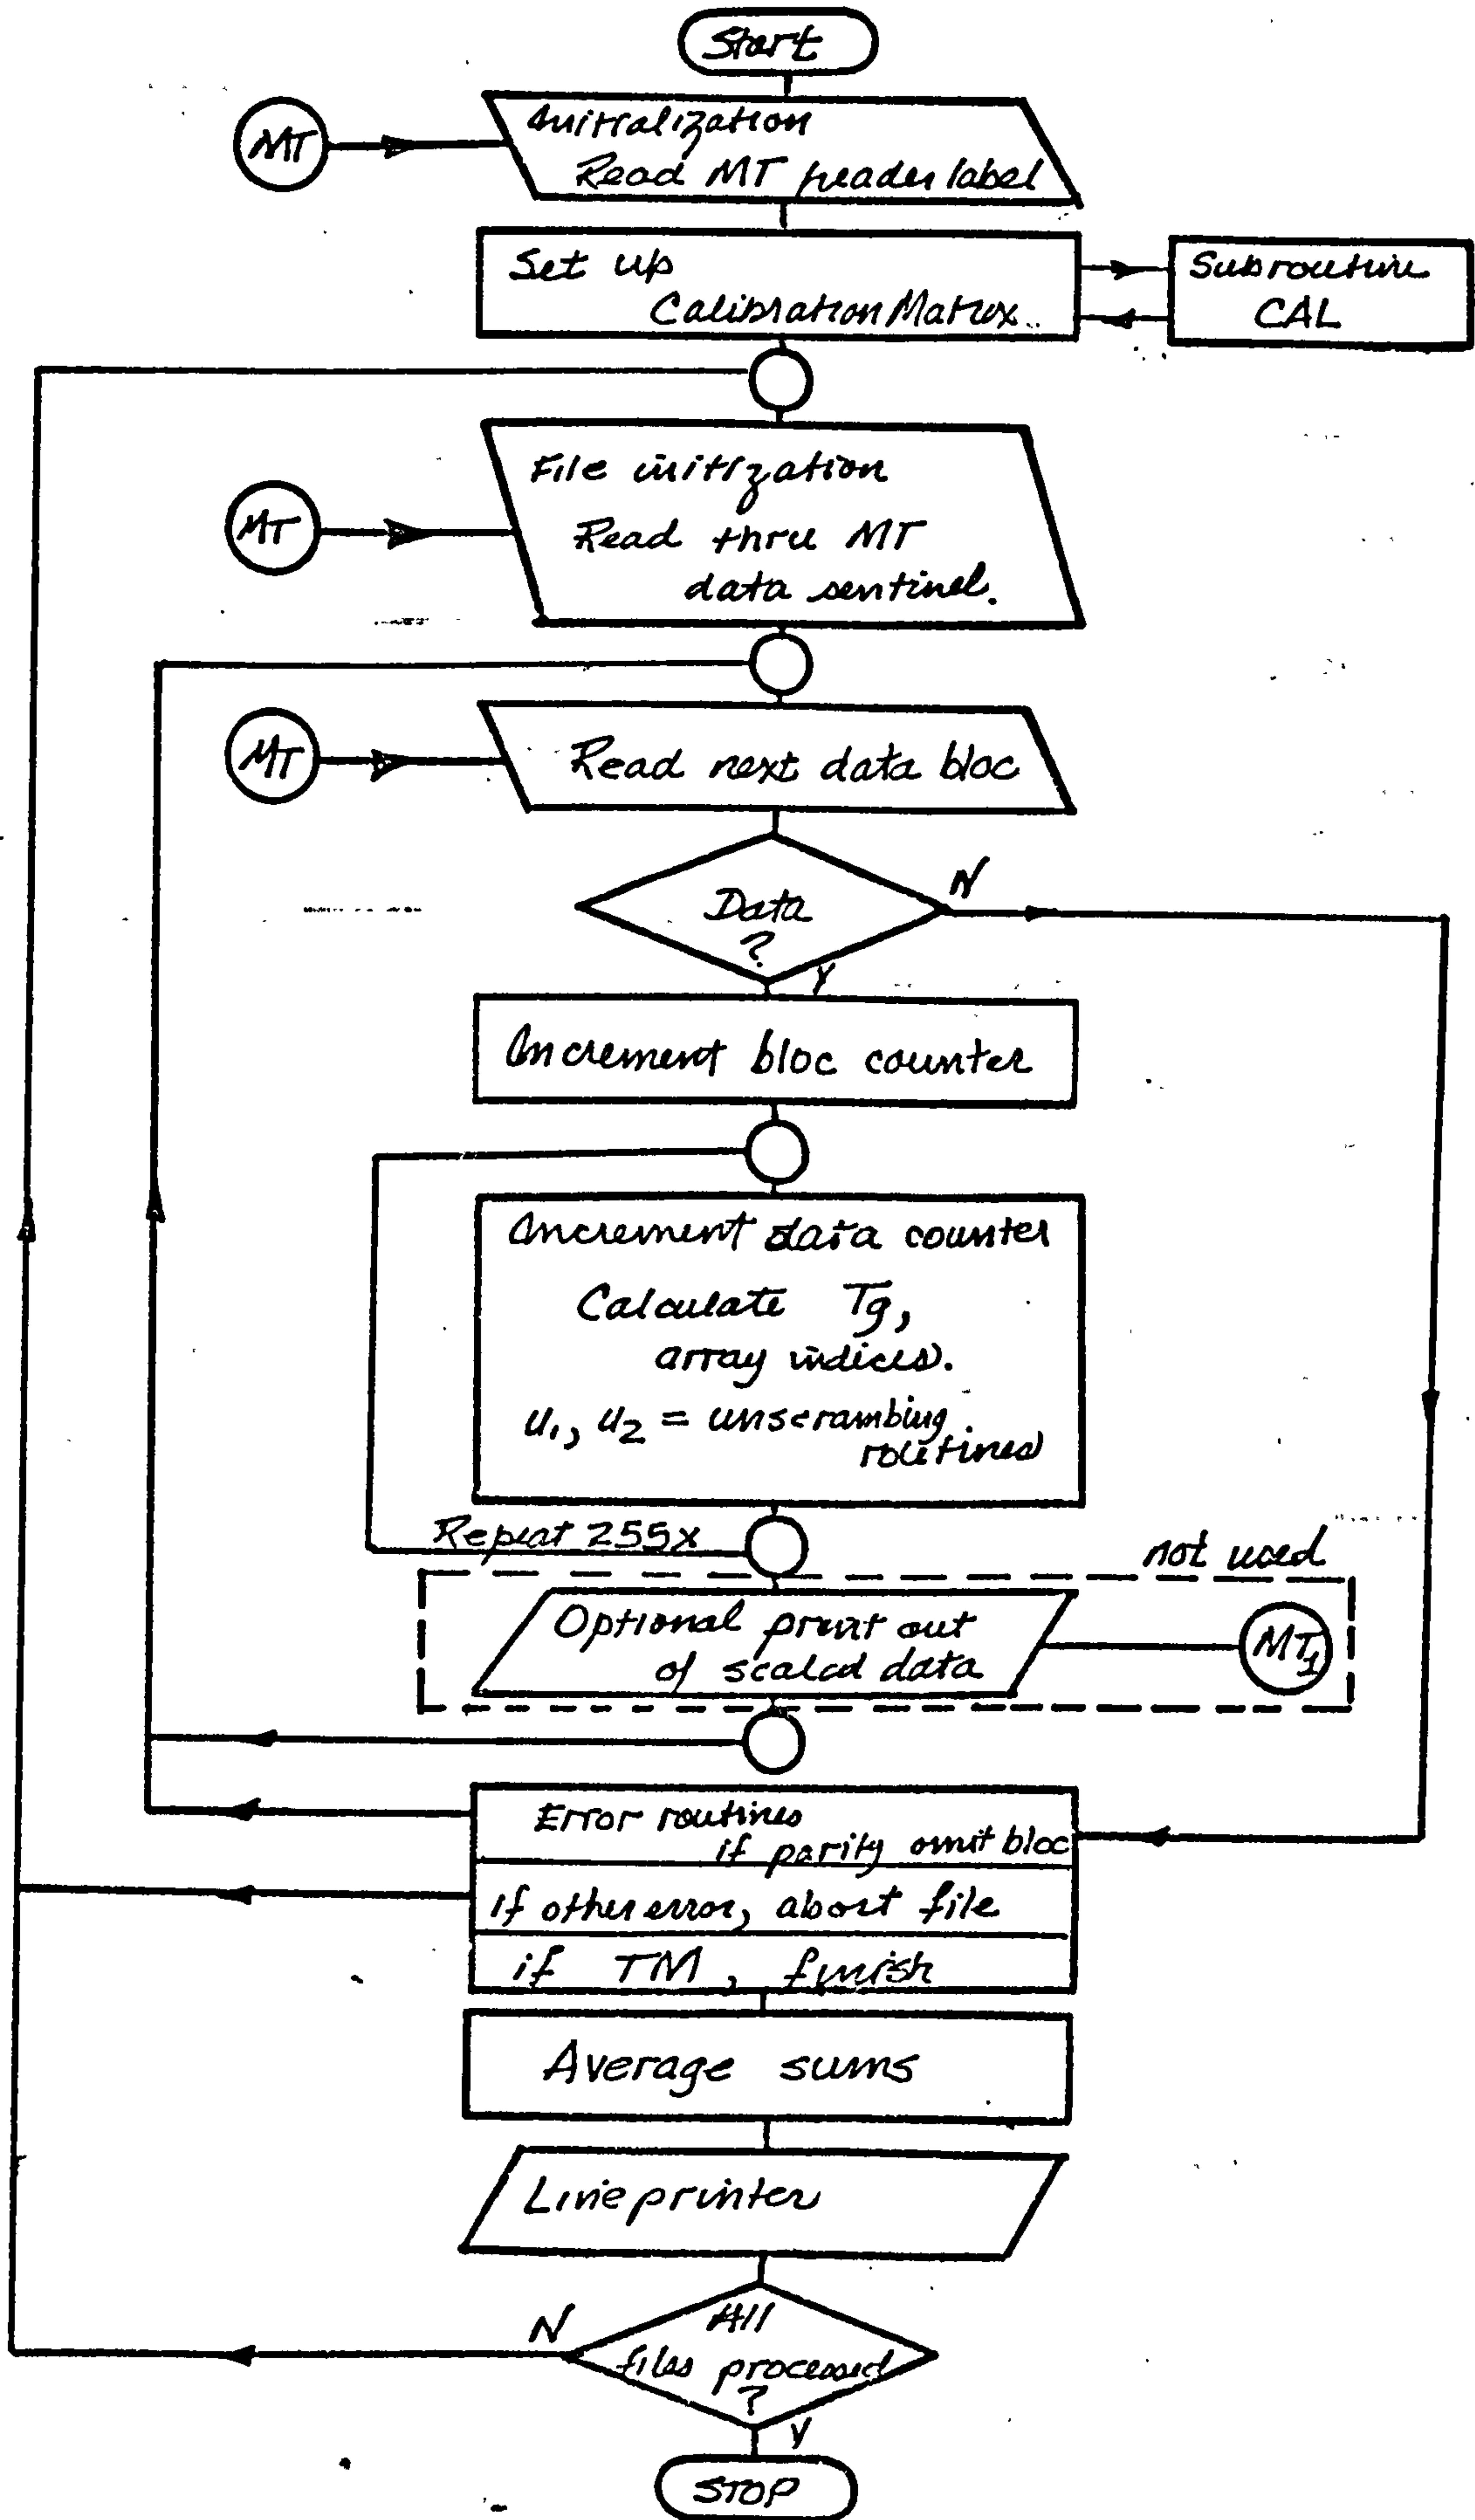 Start
MT
Initialization
Read MT header label
Set up
Calibration Matrix
Subroutine
CAL
MT
File initization
Read thru MT
data sentinel.
MT
Read next data bloc
Data
?
N
Y
Increment bloc counter
Increment data counter
Calculate Tg,
array indices.
u1, u2 = unscrambing
routines
Repeat 255x
not used
Optional print out
of scaled data
MT1
Error routines
if parity omit bloc
if other error, abort file
if TM, finish
Average sums
Line printer
All
files processed
?
N
Y
STOP